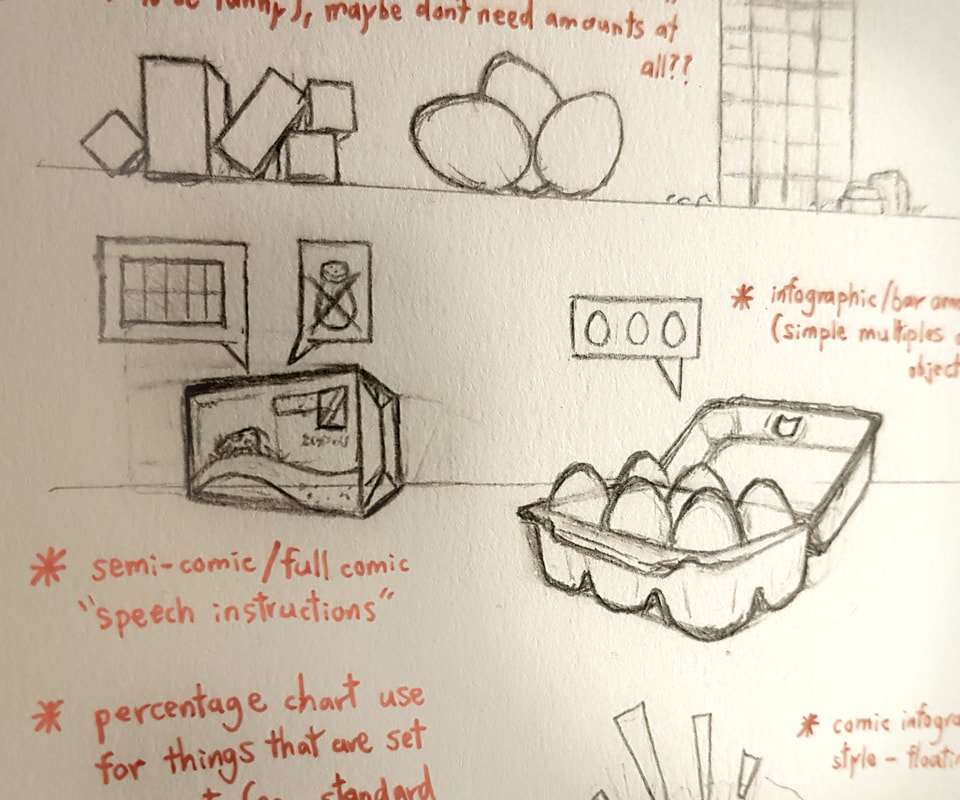 to be funny), maybe don't need amounts at
all??
* infographic/bar
(simple multiples
* semi-comic/full comic
"speech instructions"
* percentage chart use
for things that are set
standard
* comic
style -